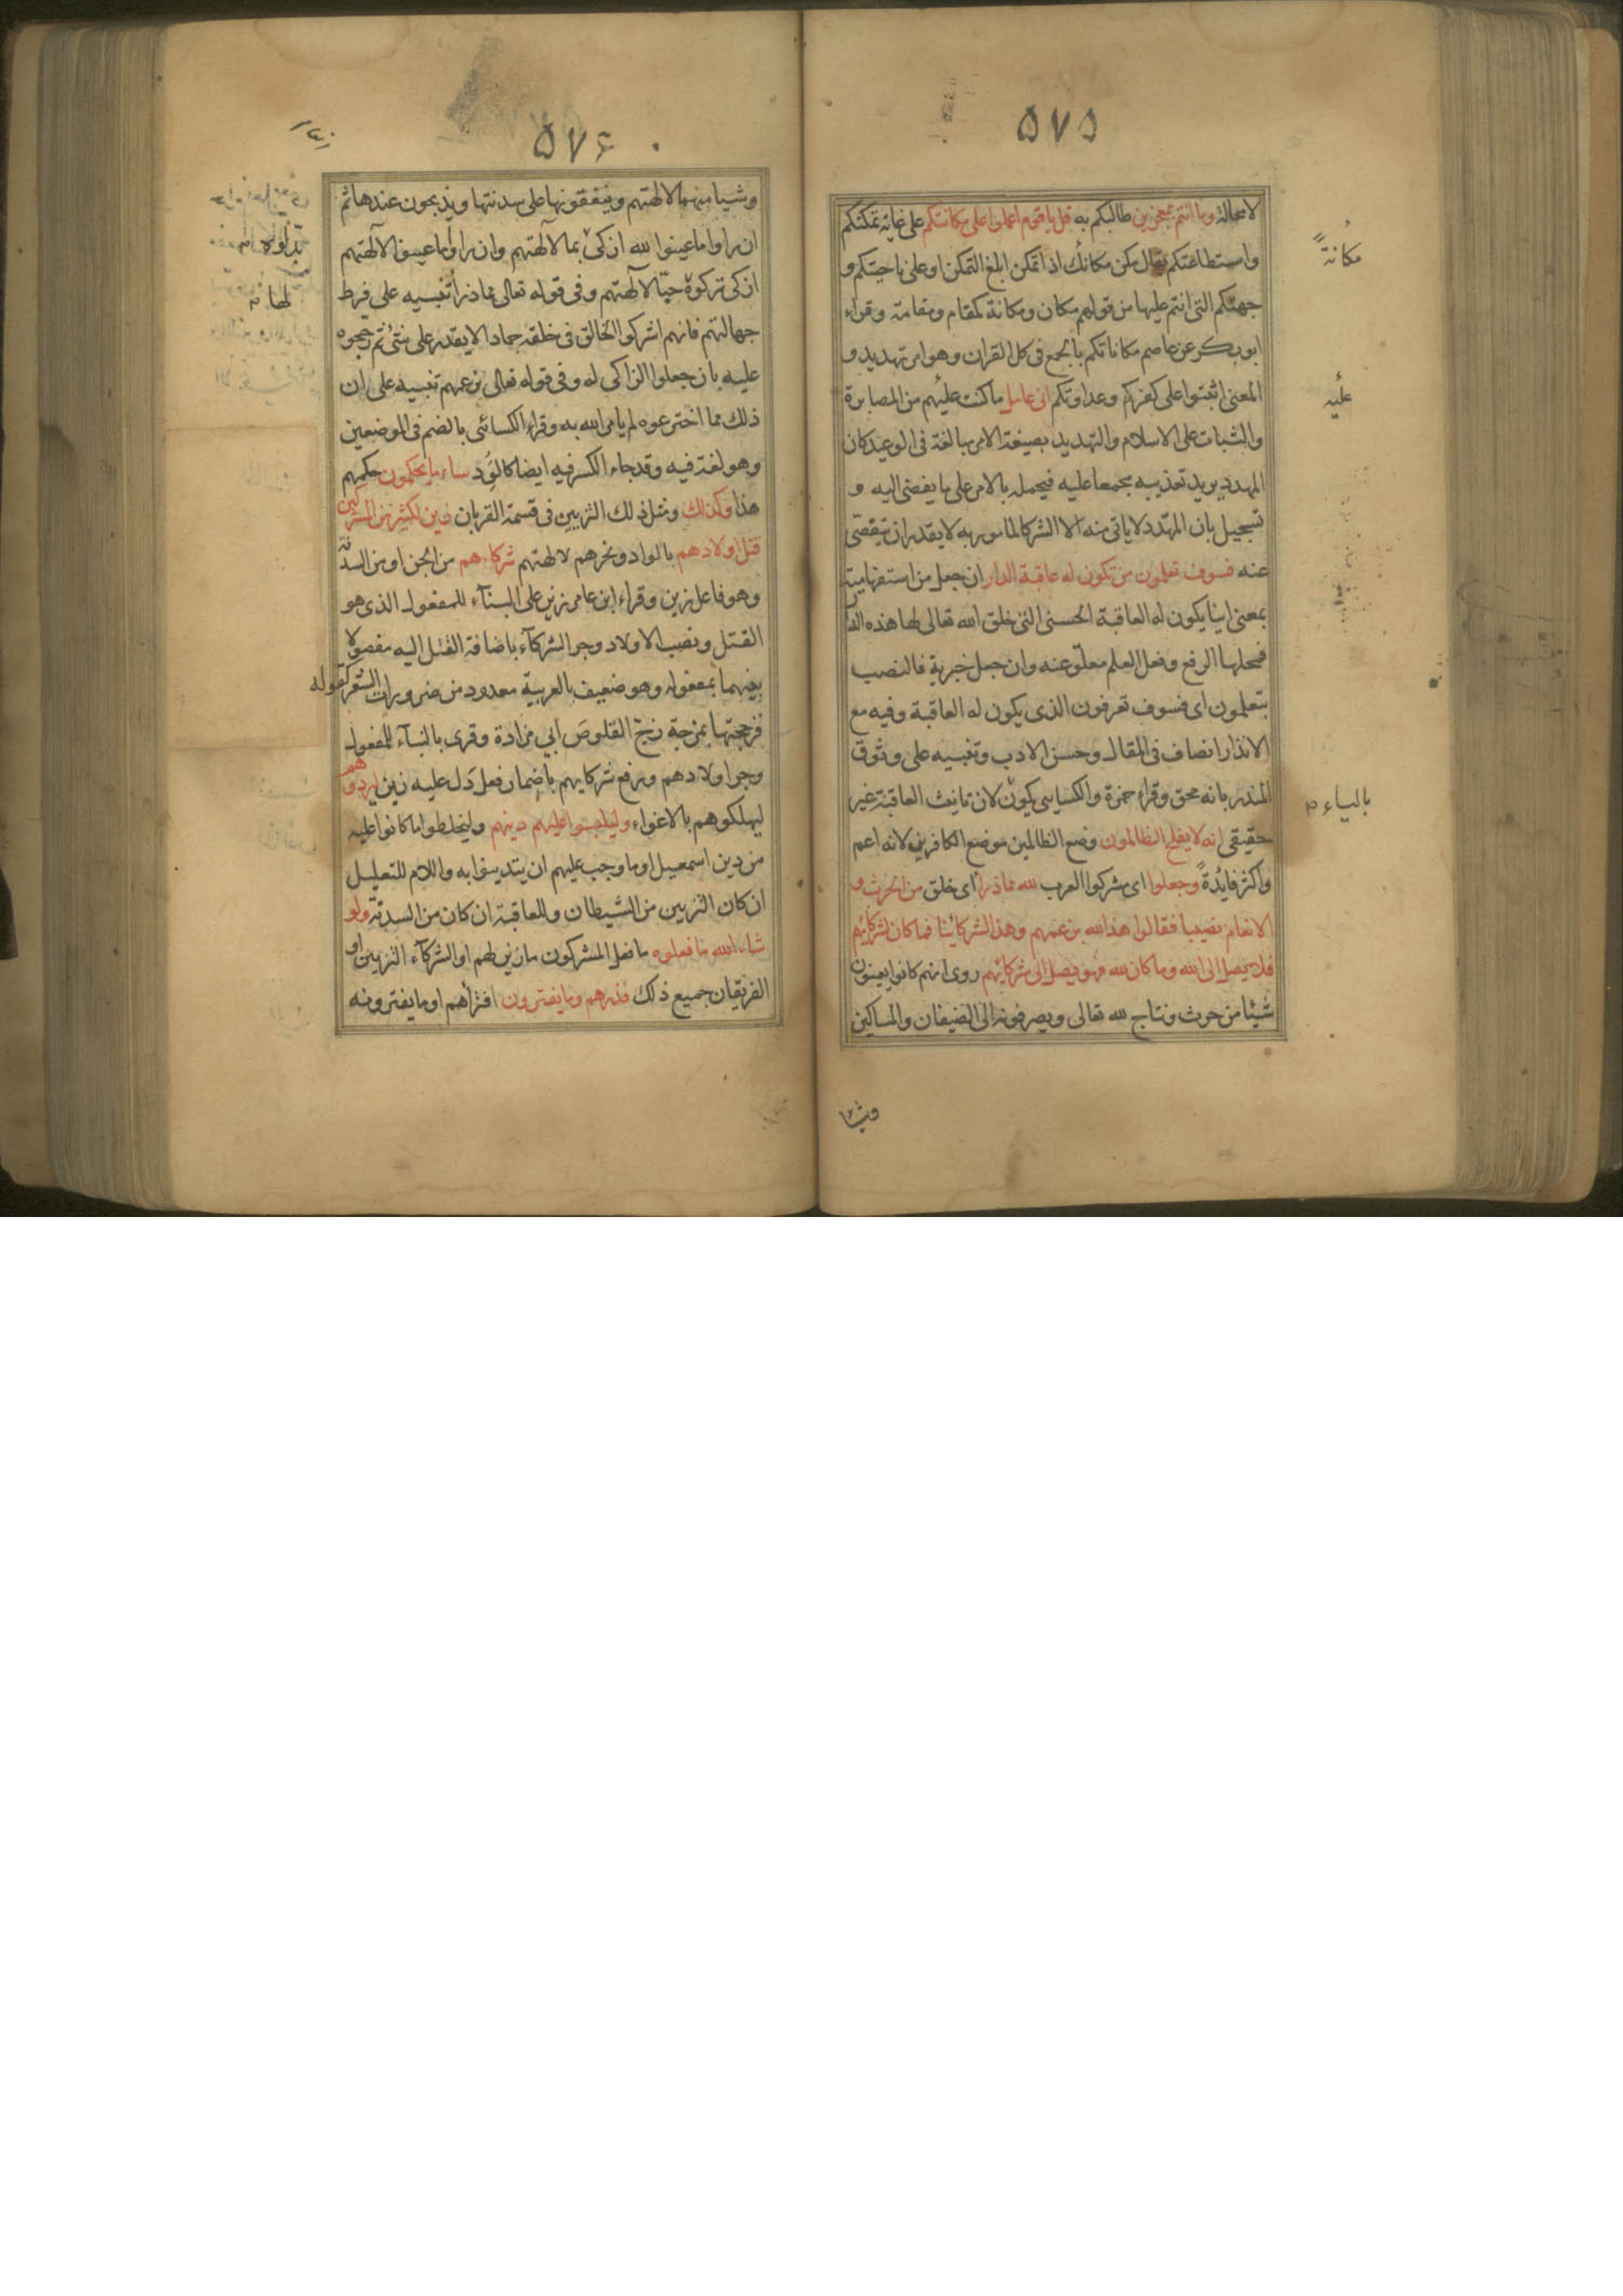 ٥٧٥
لامحالة وما انتم بمعجزين طالبكم به قل يا قوم اعملوا على مكانتكم على غاية تمكنكم
واستطاعتكم يقال مكن مكانك اذا تمكن ابلغ التمكن او على ناحيتكم و
جهتكم التى انتم عليها من قولهم مكان ومكانة كمقام ومقامة وقراء
ابو بكر عن عاصم مكاناتكم بالجمع فى كل القران وهو امر تهديد و
المعنى اثبتوا على كفركم وعداوتكم انى عامل ما كنت عليهم من المصابرة
والثبات على الاسلام والتهديد بصيغة الامر مبالغة فى الوعيد كان
المهدد يريد تعذيبه مجمعا عليه فيحمله بالامر على ما يفضى اليه و
تسجيل بان المهدد لا ياتى منه الا الشر كالمامور به لا يقدر ان يتقصى
عنه فسوف تعلمون من تكون له عاقبة الدار ان جعل من استفهامية
بمعنى اينا يكون له العاقبة الحسنى التى خلق الله تعالى لها هذه الدار
فمحلها الرفع وفعل العلم معلق عنه وان جعل خبرية فالنصب
بتعلمون اى فسوف تعرفون الذى يكون له العاقبة وفيه مع
الانذار انصاف فى المقال وحسن الادب وتنبيه على وثوق
المنذر بانه محق وقراء حمزة والكسايى يكون لان تانيث العاقبة غير
حقيقى انه لا يفلح الظالمون وضع الظالمين موضع الكافرين لانه اعم
واكثر فايدة وجعلوا اى مشركوا العرب لله مما ذرأ اى خلق من الحرث و
الانعام نصيبا فقالوا هذا لله بزعمهم وهذا لشركائنا فما كان لشركائهم
فلا يصل الى الله وما كان لله فهو يصل الى شركائهم روى انهم كانوا يعينون
شيئا من حرث ونتاج لله تعالى ويصرفونه الى الضيفان والمساكين
وشيئا
مكانة
عليه
بالياء م
٥٧٤
وشيا منهما لالهتهم وينفقونها على سدنتها ويذبحون عندها ثم
ان راوا ما عينوا لله ازكى بما لالهتهم وان راوا ما عينوا لالهتهم
ازكى تركوه حبا لآلهتهم وفى قوله تعالى مما ذرأ تنبيه على فرط
جهالتهم فانهم اشركوا الخالق فى خلقه جمادا لا يقدر على شئ ثم رجحوه
عليه بان جعلوا الزاكى له وفى قوله تعالى بزعمهم تنبيه على ان
ذلك مما اخترعوه لم يامر الله به وقراء الكسائى بالضم فى الموضعين
وهو لغة فيه وقد جاء الكسر فيه ايضا كالود ساء ما يحكمون حكمهم
هذا وكذلك ومثل ذلك التزيين فى قسمة القربان زين لكثير من المشركين
قتل اولادهم بالواد ونحرهم لالهتهم شركاءهم من الجن او من السدنة
وهو فاعل زين وقراء ابن عامر زين على البنآء للمفعول الذى هو
القتل ونصب الاولاد وجر الشركآء باضافة القتل اليه مفصولا
بينهما بمفعوله وهو ضعيف بالعربية معدود من ضرورات الشعر كقوله
فزججتها بمزجة زج القلوص ابي مزادة وقرى بالبنآء للمفعول
وجر اولادهم ورفع شركايهم باضمار فعل دل عليه زين ليردوهم
ليهلكوهم بالاغواء وليلبسوا عليهم دينهم وليخلطوا ما كانوا عليه
من دين اسمعيل او ما وجب عليهم ان يتدينوا به واللام للتعليل
ان كان التزيين من الشيطان وللعاقبة ان كان من السدنة ولو
شاء الله ما فعلوه ما فعل المشركون ما زين لهم او الشركآء التزيين او
الفريقان جميع ذلك فذرهم وما يفترون افتراهم او ما يفترونه
بدلوه